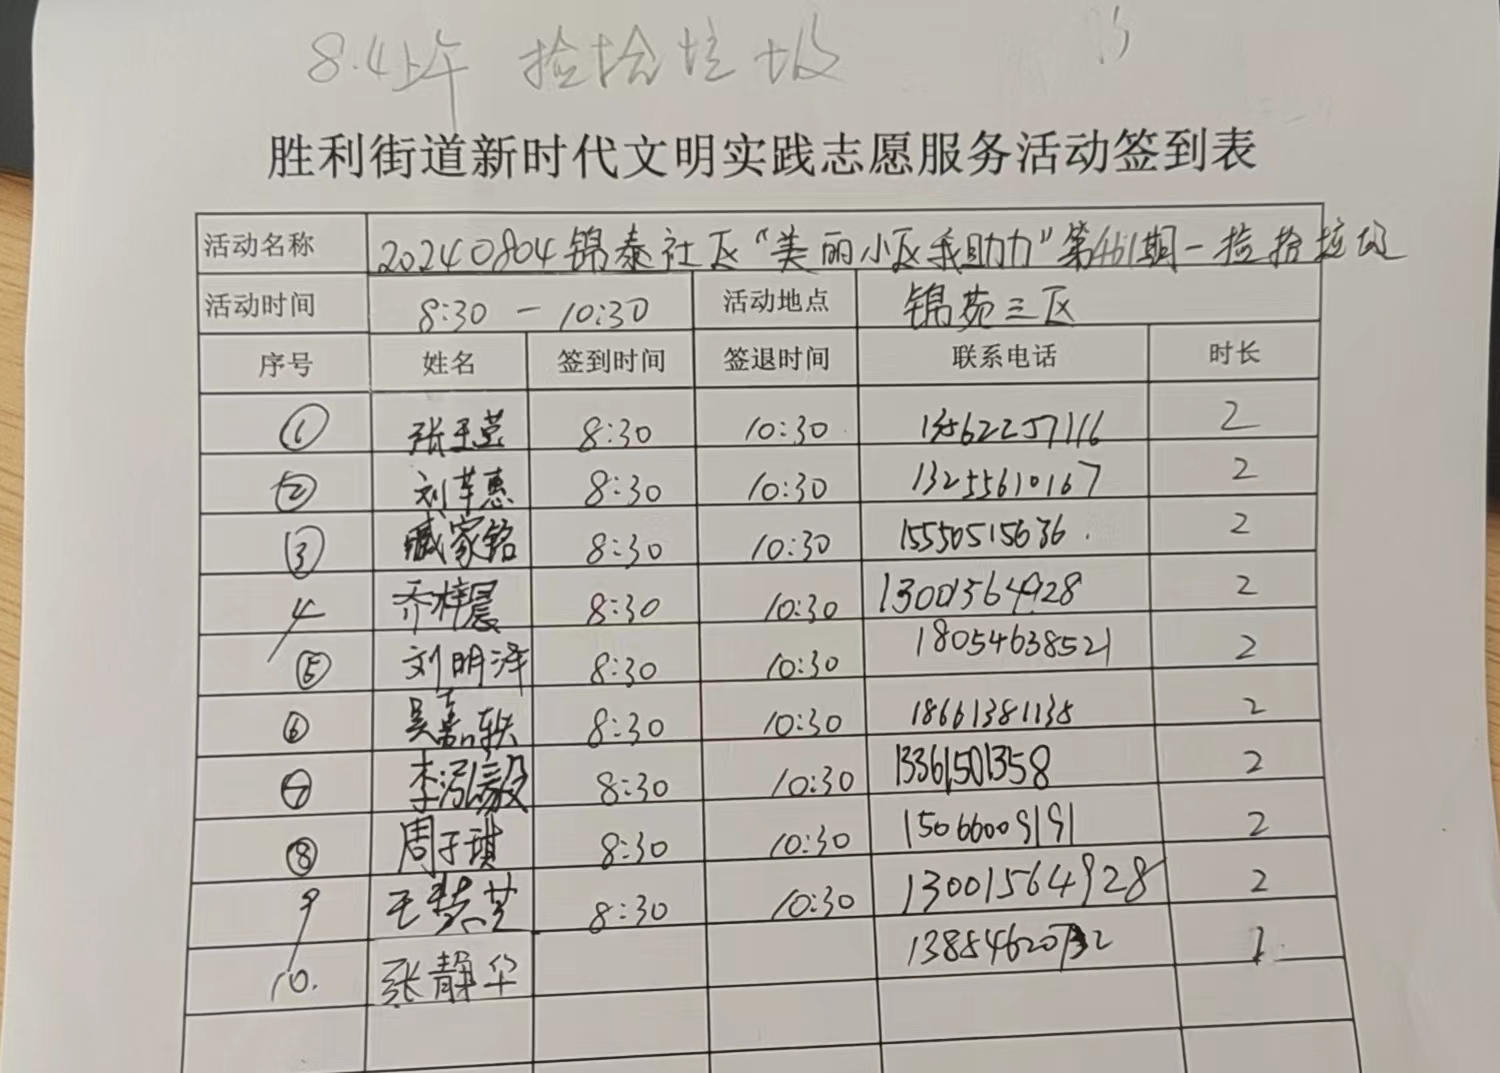 8.4上午 捡拾垃圾
胜利街道新时代文明实践志愿服务活动签到表
活动名称 20240804锦泰社区“美丽小区我助力”第461期-捡拾垃圾
活动时间 8:30-10:30 活动地点 锦苑三区
序号 姓名 签到时间 签退时间 联系电话 时长
① 张玉莹 8:30 10:30 13562257116 2
② 刘芊惠 8:30 10:30 13255610167 2
③ 臧家铭 8:30 10:30 15550515636 2
4 乔梓晨 8:30 10:30 13001564928 2
⑤ 刘明泽 8:30 10:30 18054638521 2
⑥ 吴嘉轶 8:30 10:30 18661381138 2
⑦ 李泓毅 8:30 10:30 13361501358 2
⑧ 周子琪 8:30 10:30 15066009191 2
9 王慧芝 8:30 10:30 13001564928 2
10. 张静华